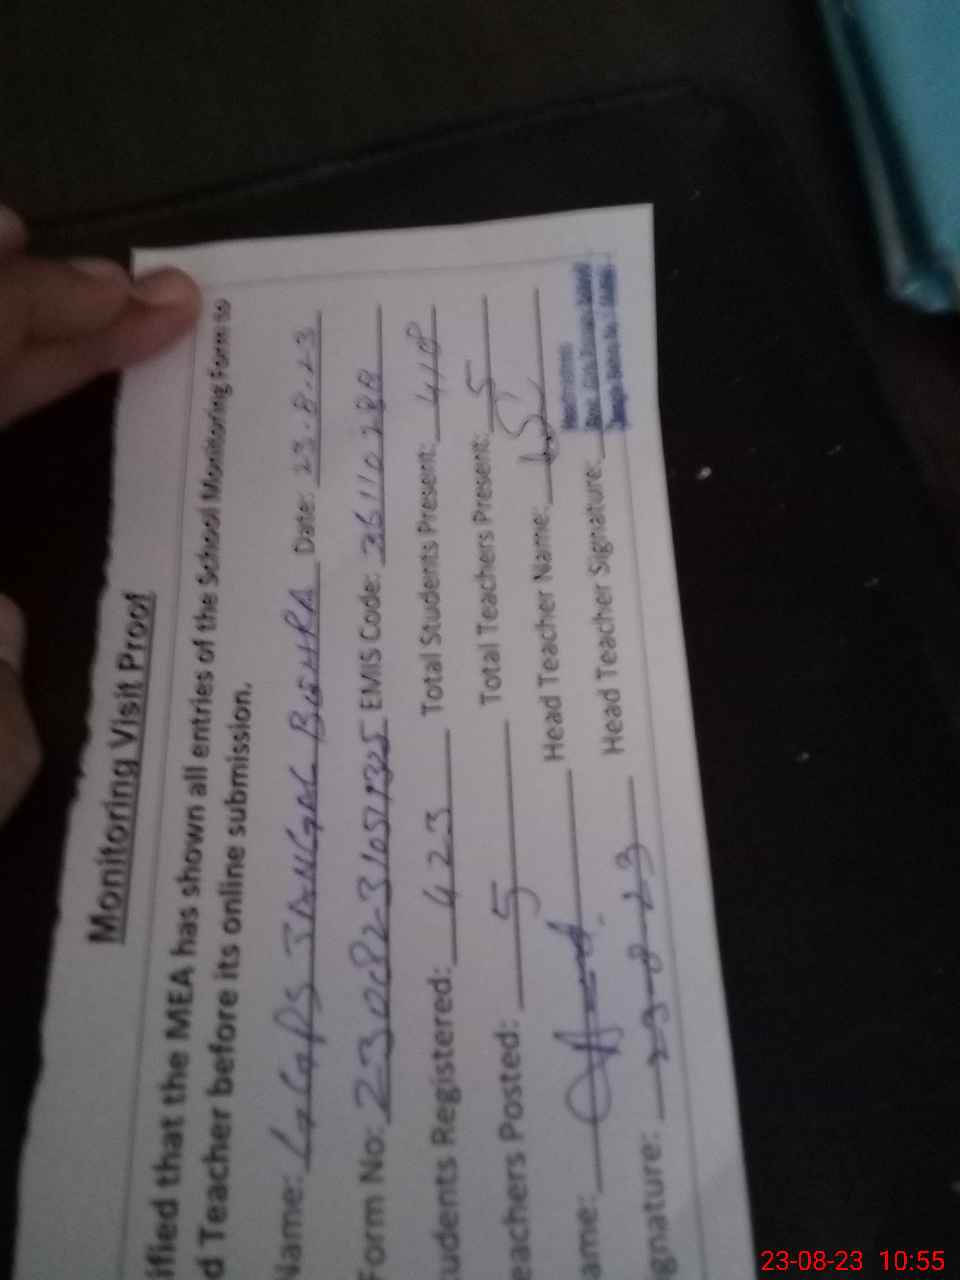 Monitoring Visit Proof
ified that the MEA has shown all entries of the School Monitoring Form to
d Teacher before its online submission.
Name: GGPS JANGAL BUHRA Date: 23.8.23
Form No: EMIS Code: 36110288
udents Registered: 423 Total Students Present: 418
eachers Posted: 5 Total Teachers Present: 5
ame: Head Teacher Name:
gnature: 23-8-23 Head Teacher Signature:
23-08-23 10:55